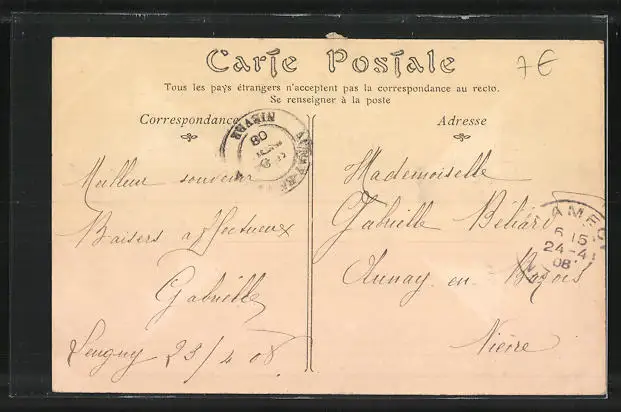 Carte Postale
7€
Tous les pays étrangers n'acceptent pas la correspondance au recto.
Se renseigner à la poste
Correspondance
Adresse
Meilleur souvenir
Baisers affectueux
Gabrielle
23/4 08
Mademoiselle
Gabrielle Béliard
Aunay en Bazois
Nièvre
NIEVRE
08
6 15
24-4
08